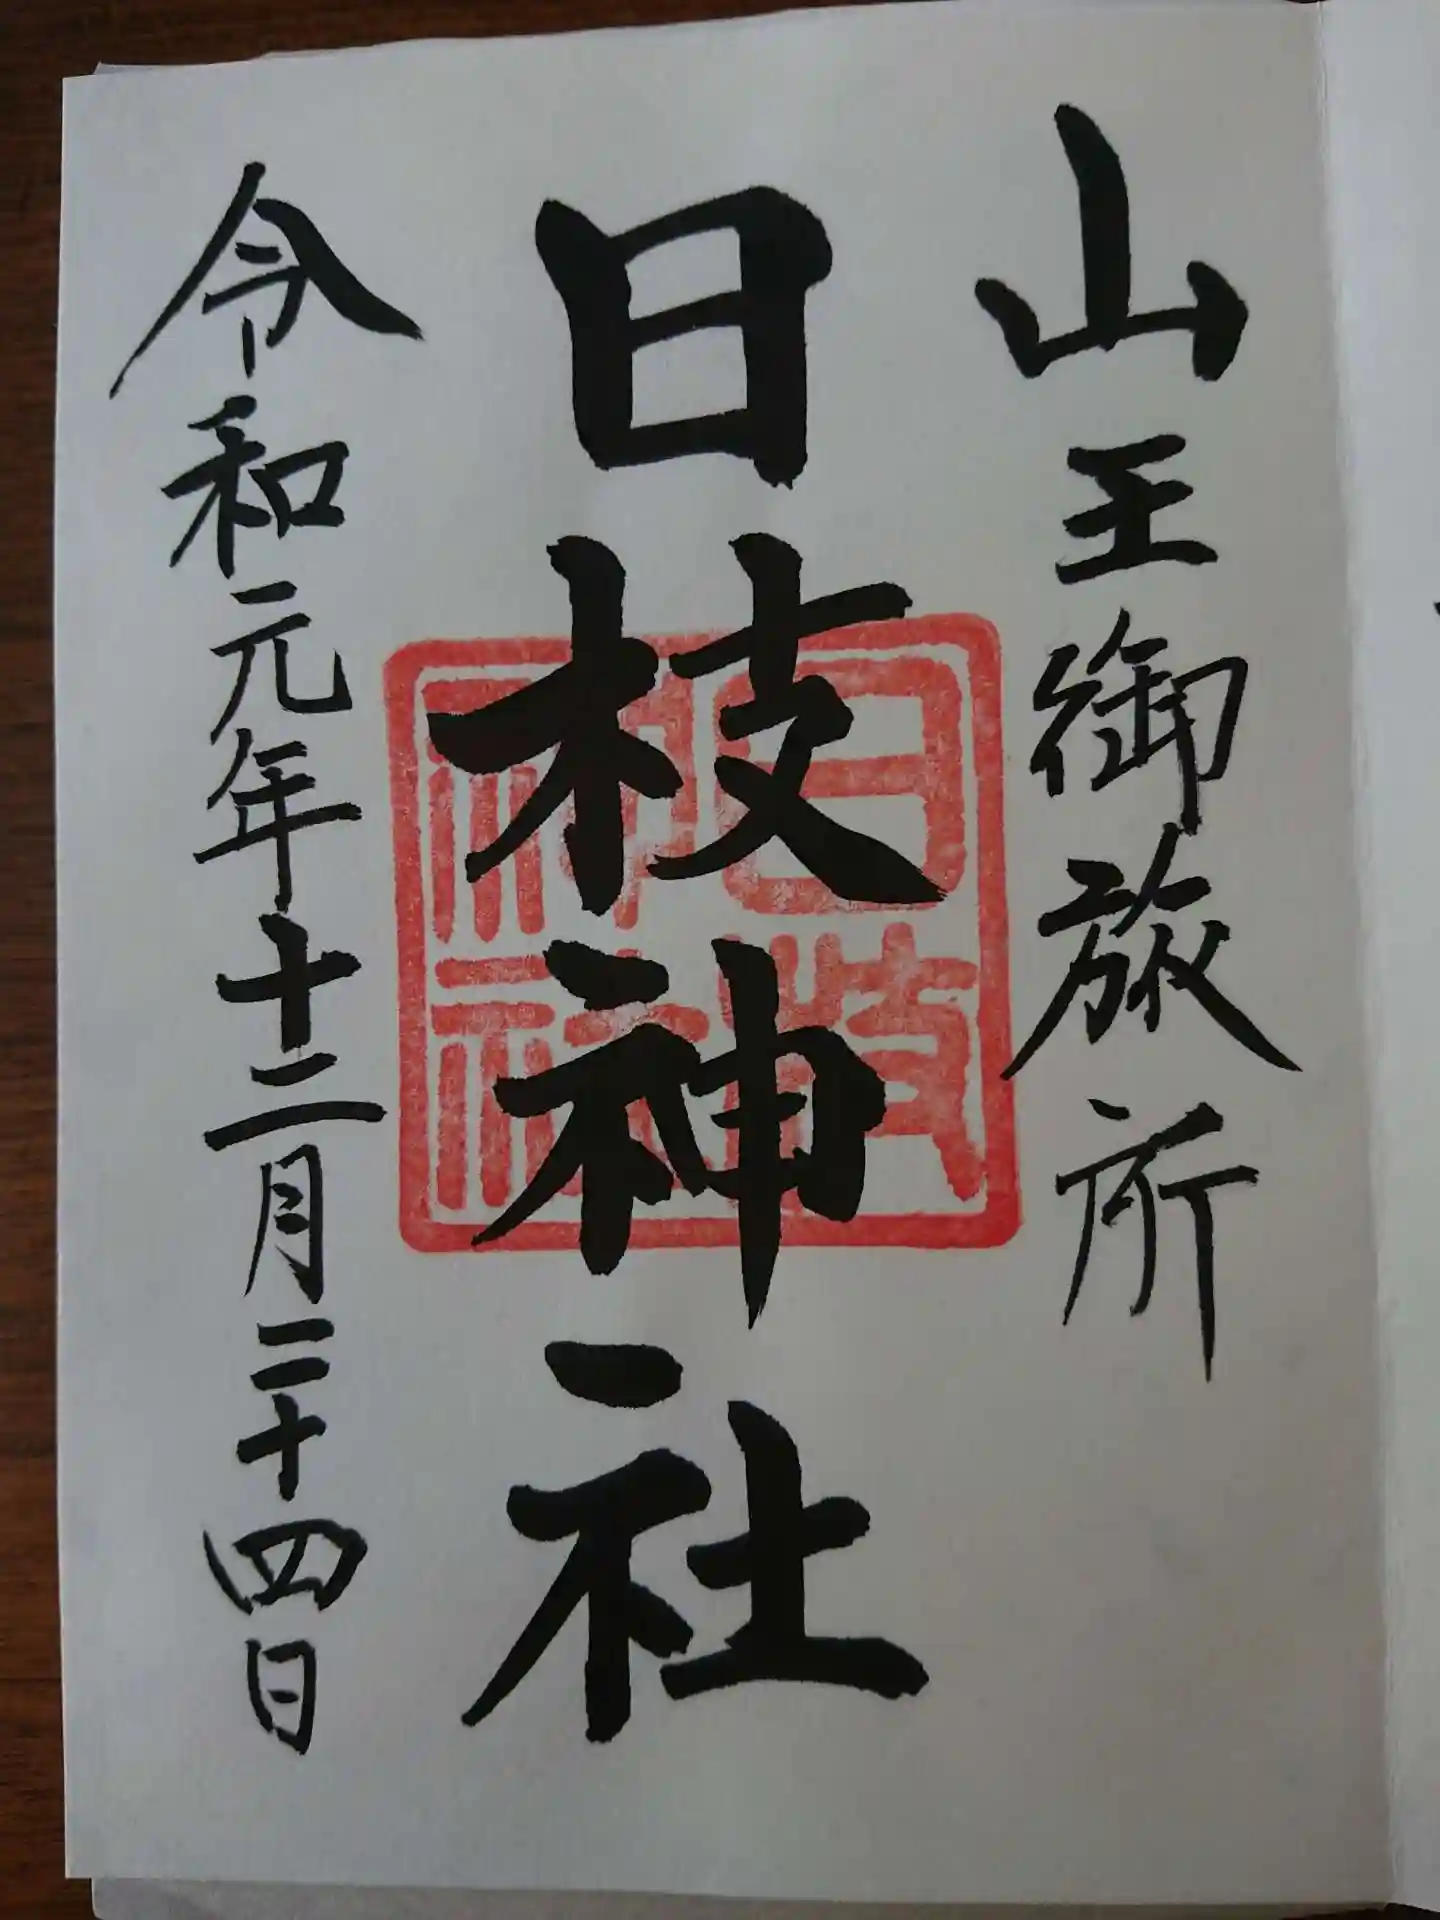 山王御旅所
日枝神社
日枝神社
令和元年十二月二十四日